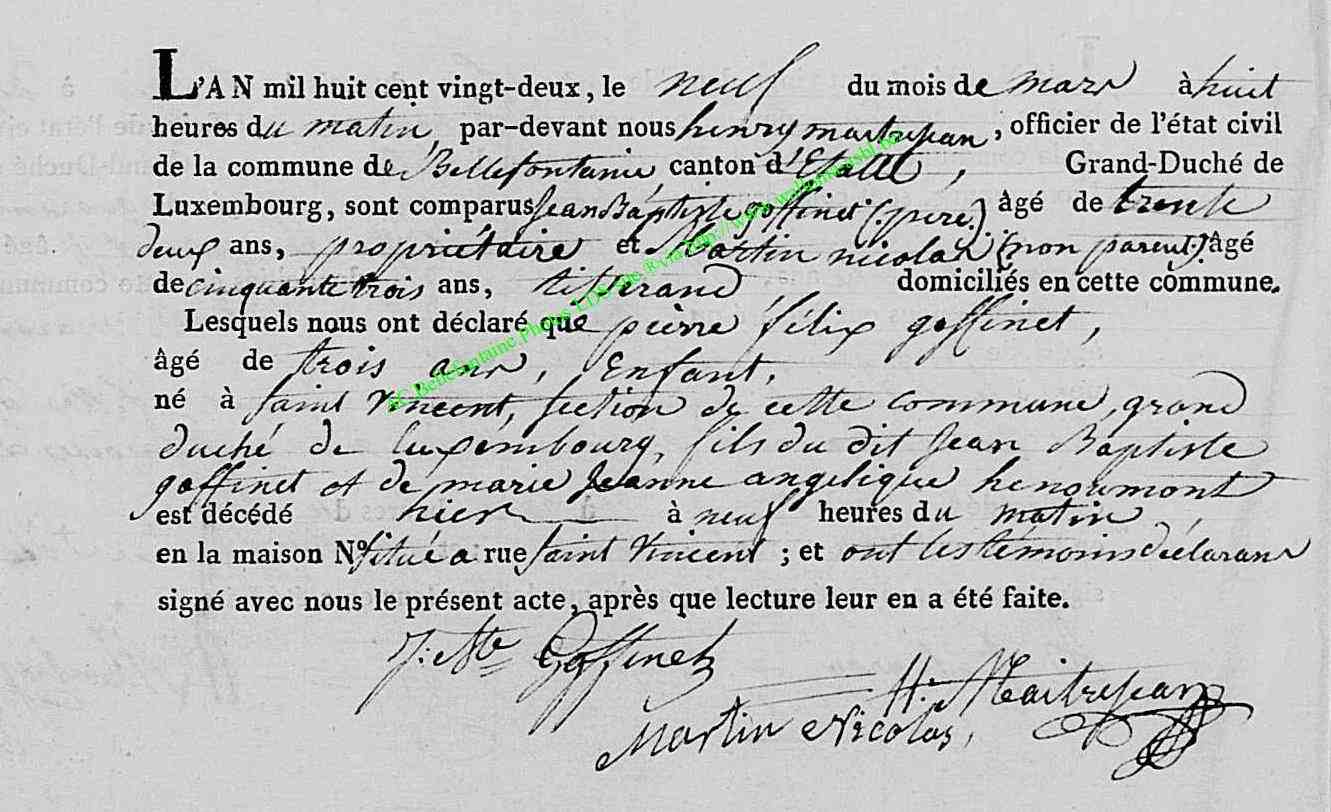 L'AN mil huit cent vingt-deux, le neuf du mois de mars à huit
heures du matin, par-devant nous henry maitrejean, officier de l'état civil
de la commune de Bellefontaine canton d'Etalle, Grand-Duché de
Luxembourg, sont comparus Jean Baptiste goffinet (père) âgé de trente
deux ans, propriétaire et Martin nicolas (non parent) âgé
de cinquante trois ans, tisserand domiciliés en cette commune.
Lesquels nous ont déclaré que pierre félix goffinet,
âgé de trois ans, Enfant,
né à saint Vincent, section de cette commune, grand
duché de Luxembourg, fils du dit Jean Baptiste
goffinet et de marie Jeanne angelique henoumont
est décédé hier à neuf heures du matin
en la maison No situé a rue saint Vincent ; et ont les témoins déclarans
signé avec nous le présent acte, après que lecture leur en a été faite.
J: Bte Goffinet
H. Maitrejean
Martin Nicolas,